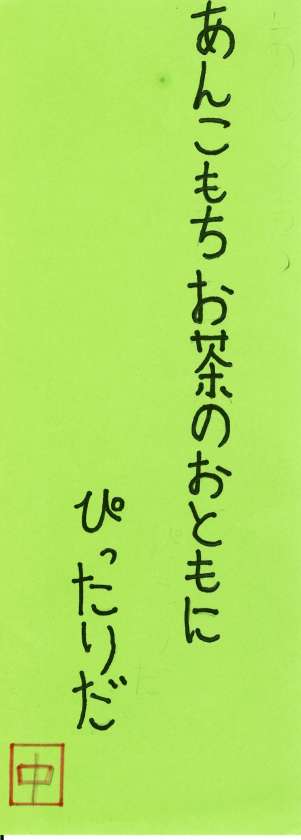 あんこもち お茶のおともに
ぴったりだ
中